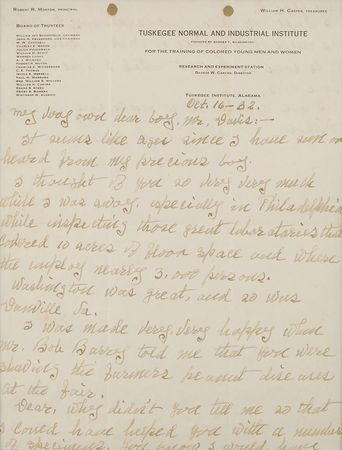 ROBERT R. MOTON, PRINCIPAL
WILLIAM H. CARTER, TREASURER
BOARD OF TRUSTEES
TUSKEGEE NORMAL AND INDUSTRIAL INSTITUTE
FOUNDED BY BOOKER T. WASHINGTON
FOR THE TRAINING OF COLORED YOUNG MEN AND WOMEN
RESEARCH AND EXPERIMENT STATION
GEORGE W. CARVER, DIRECTOR
TUSKEGEE INSTITUTE, ALABAMA
Oct. 16-32.
My very own dear boy, Mr. Davis:-
It seems like ages since I have seen or
heard from my precious boy.
I thought of you so very, very much
while I was away, especially in Philadelphia
while inspecting those great laboratories that
covered 10 acres of floor space and where
the employ nearly 3,000 persons.
Washington was great, and so was
Danville Va.
I was made very, very happy when
Mr. Bob Barry told me that you were
showing the farmers peanut diseases
at the Fair.
Dear, why didn't you tell me so that
I could have helped you with a number
of specimens. You know I would have